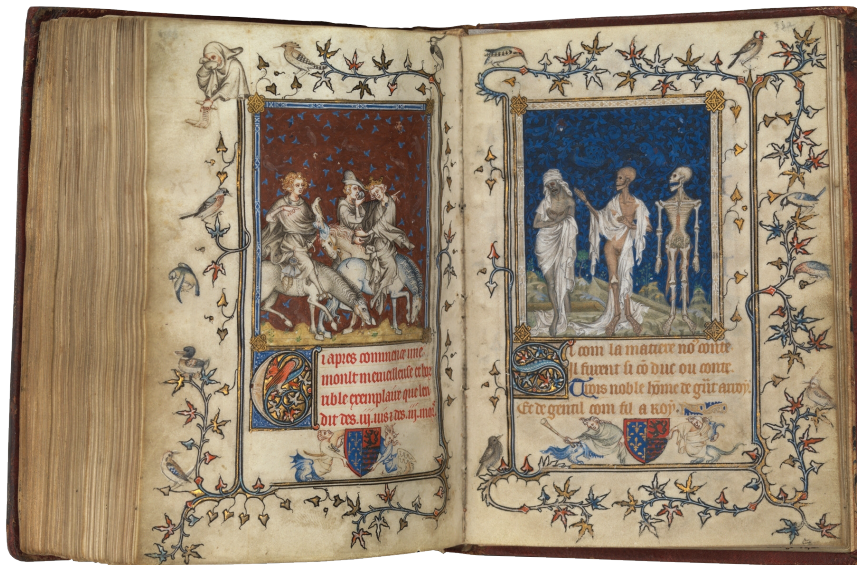 Ci apres commence une
moult merveilleuse et hor
rible exemplaire que len
dit des .iij. vis et des .iij. mors
Si com la matiere nō conte
Il furent si cō duc ou conte
Trois noble hōme de gn̄t arroy
Et de gentil com fil a Roy.